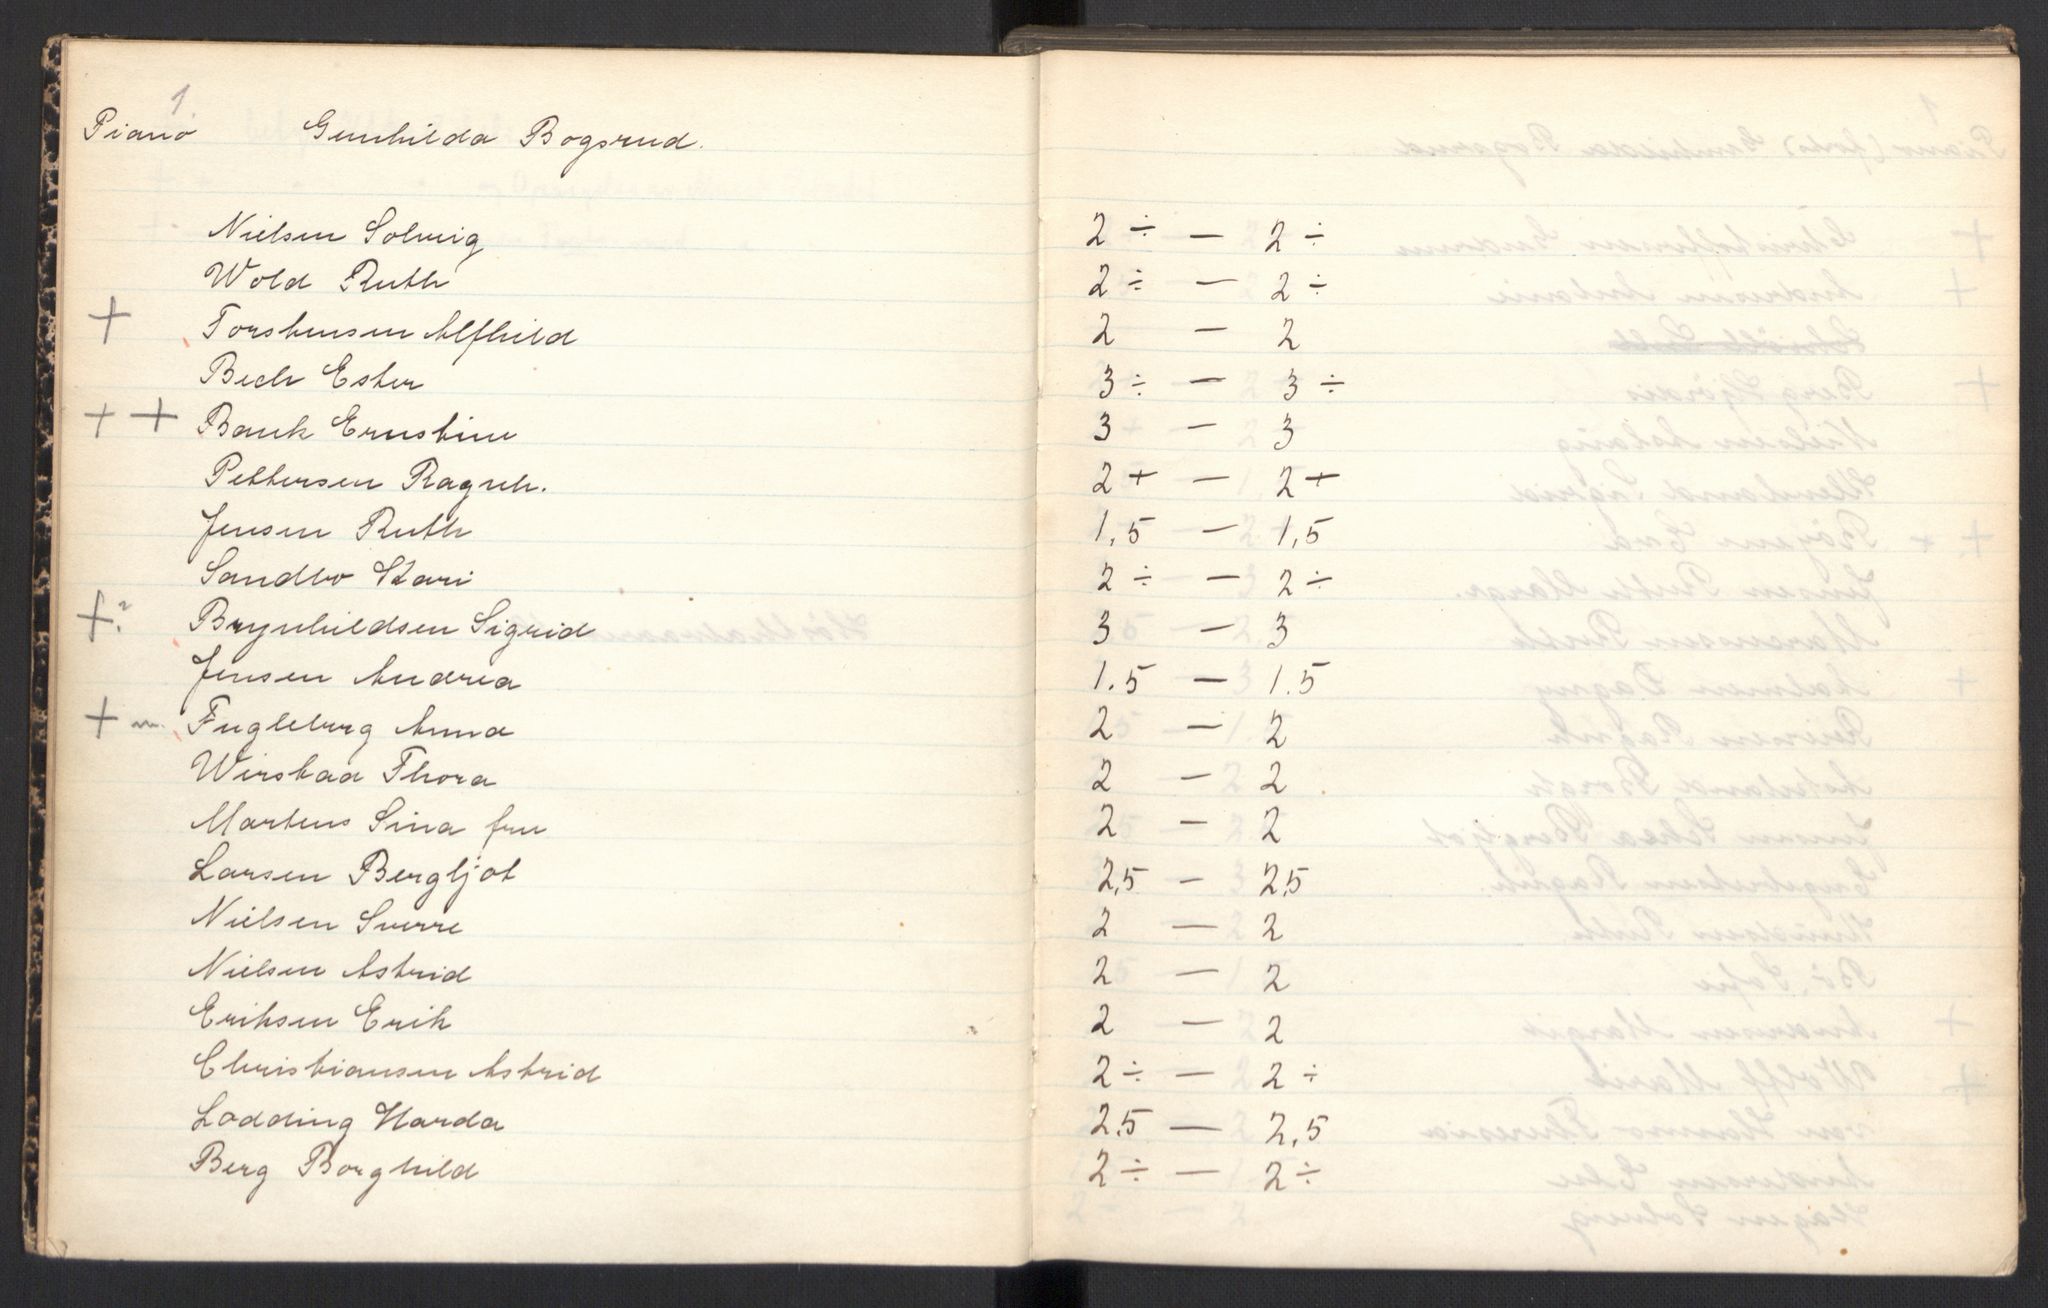 1
Piano Gunhilda Bogsrud.
Nielsen Solveig 2 ÷ — 2 ÷
Wold Ruth 2 ÷ — 2 ÷
+ Torstensen Alfhild 2 — 2
Bech Ester 3 ÷ — 3 ÷
+ + Bauk Ernstine 3 — 3
Pettersen Ragnh. 2+ — 2+
Jensen Ruth 1,5 — 1,5
Sandbo Kari 2 ÷ — 2 ÷
+? Brynhildsen Sigrid 3 — 3
Jensen Andrea 1.5 — 1.5
+ m. Fugleberg Anna 2 — 2
Wirstad Thora 2 — 2
Martens Sina fru 2 — 2
Larsen Bergljot 2,5 — 2,5
Nielsen Sverre 2 — 2
Nielsen Astrid 2 — 2
Eriksen Erik 2 — 2
Christiansen Astrid 2 ÷ — 2 ÷
Lodding Harda 2,5 — 2,5
Berg Borghild 2 ÷ — 2 ÷